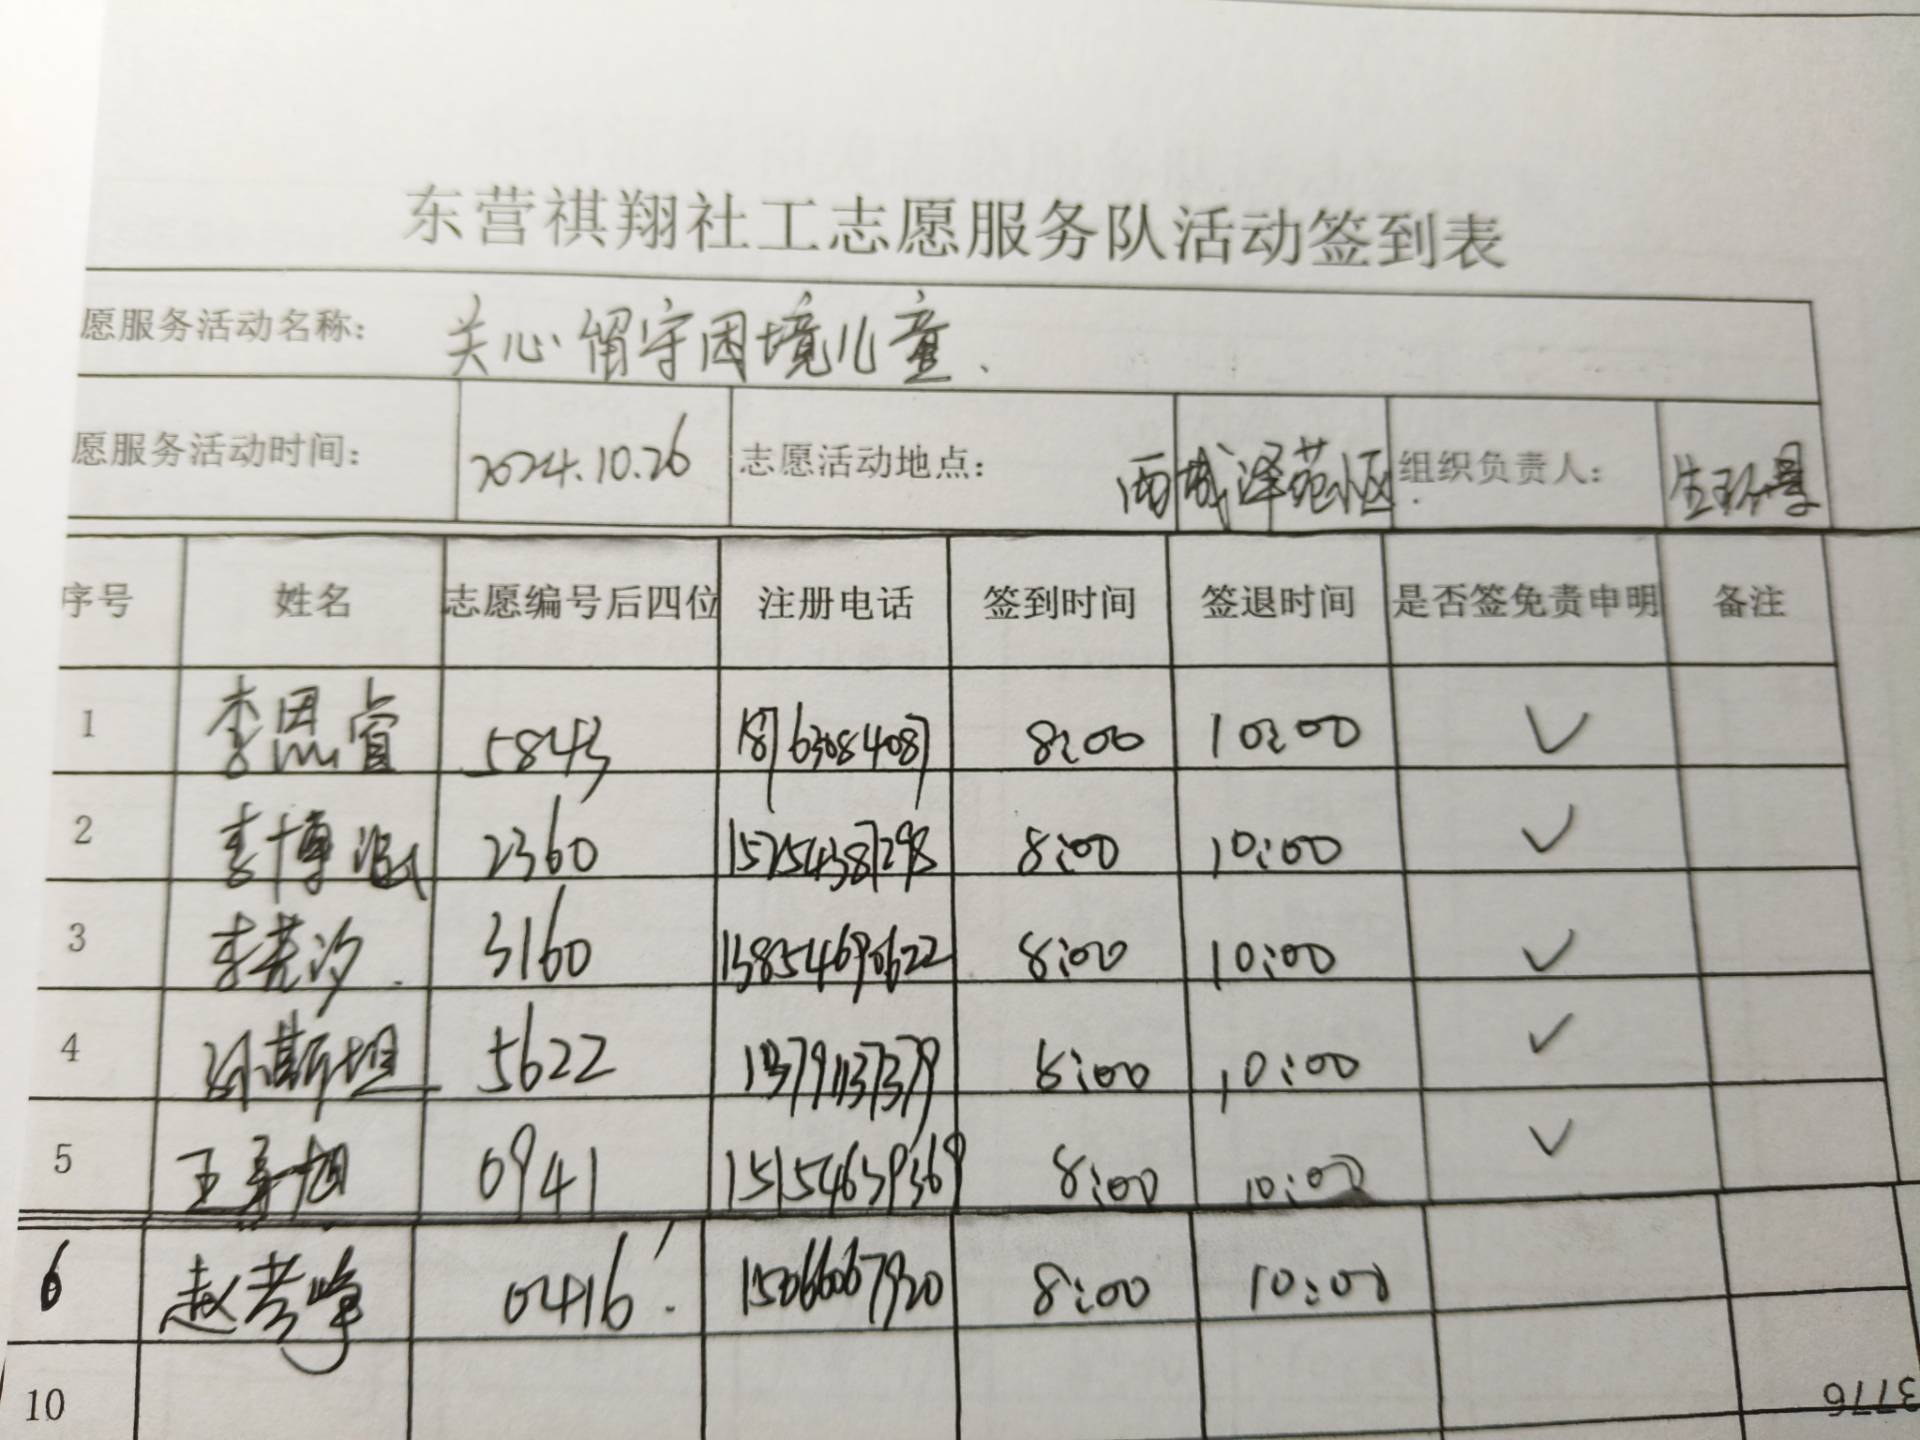 东营祺翔社工志愿服务队活动签到表
愿服务活动名称： 关心留守困境儿童.
愿服务活动时间： 2024.10.26 志愿活动地点： 西城泽苑小区. 组织负责人：
序号 姓名 志愿编号后四位 注册电话 签到时间 签退时间 是否签免责申明 备注
1 李恩睿 5843 18763084087 8:00 10:00 ✓
2 李博涵 2360 15254387298 8:00 10:00 ✓
3 李芸汐. 3160 13854690622 8:00 10:00 ✓
4 孙斯坦 5622 13791137379 8:00 10:00 ✓
5 王 0941 15154639369 8:00 10:00 ✓
6 赵 0416 15066067920 8:00 10:00
10
3776